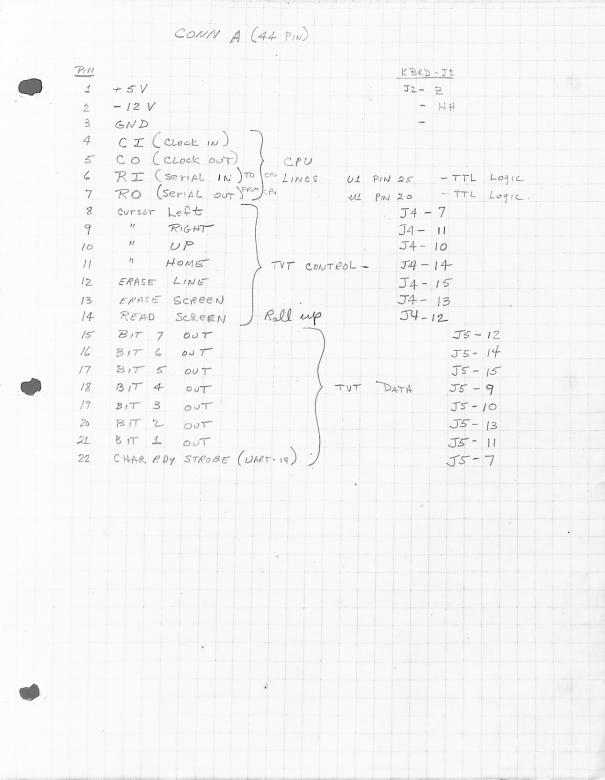 CONN A (44 PIN)
PIN KBRD-J2
1 +5V J2- Z
2 -12V - HH
3 GND -
4 CI (CLOCK IN)
5 CO (CLOCK OUT) CPU
6 RI (SERIAL IN) TO CPU LINES U1 PIN 25 - TTL LOGIC
7 RO (SERIAL OUT) FROM CPU U1 PIN 20 - TTL LOGIC.
8 CURSOR Left J4-7
9 " RIGHT J4-11
10 " UP J4-10
11 " HOME TVT CONTROL - J4-14
12 ERASE LINE J4-15
13 ERASE SCREEN J4-13
14 READ SCREEN Roll up J4-12
15 BIT 7 OUT J5-12
16 BIT 6 OUT J5-14
17 BIT 5 OUT J5-15
18 BIT 4 OUT TVT DATA J5-9
19 BIT 3 OUT J5-10
20 BIT 2 OUT J5-13
21 BIT 1 OUT J5-11
22 CHAR RDY STROBE (UART-19) J5-7